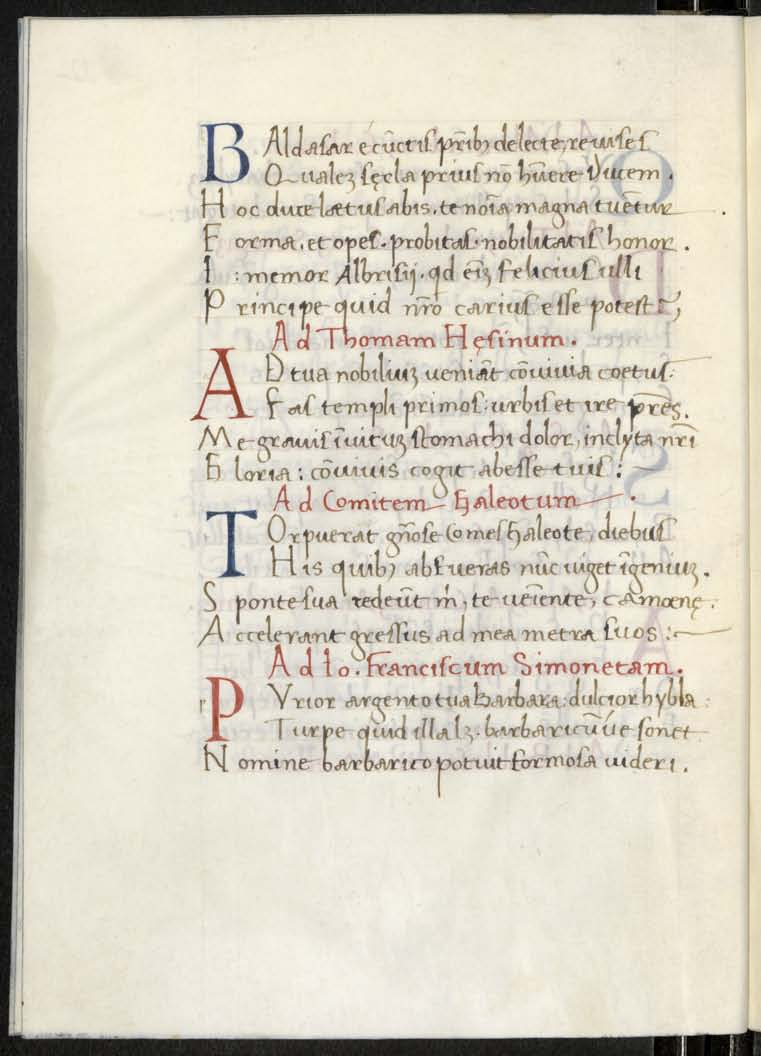 BAldasar é cūctis pr̄ibꝫ delecte, reuises
Qualeꝫ sęcla prius nō hūere ducem.
Hoc duce lætus abis. te nōīa magna tuētur
Forma. et opes. probitas. nobilitatis honor.
I: memor Albrisij. qd eīꝫ felicius ulli
Principe quid nr̄o carius esse potest?
Ad Thomam Hęsinum.
AD tua nobiliuꝫ ueniāt cōuiuia coetus:
Fas templi primos: urbis et ire pr̄es.
Me grauis īuituꝫ stomachi dolor, inclyta nr̄i
Gloria: cōuiuis cogit abesse tuis:
Ad Comitem Galeotum.
TOrpuerat gn̄ose Comes Galeote, diebus
His quibꝫ abfueras nūc uiget īgeniuꝫ.
Sponte sua redeūt m̄, te ueīente, camœnę:
Accelerant gressus ad mea metra suos:
Ad Io. Franciscum Simonetam.
PVrior argento tua Barbara: dulcior hybla:
Turpe quid illa lꝫ. barbaricū ue sonet
Nomine barbarico potuit formosa uideri.